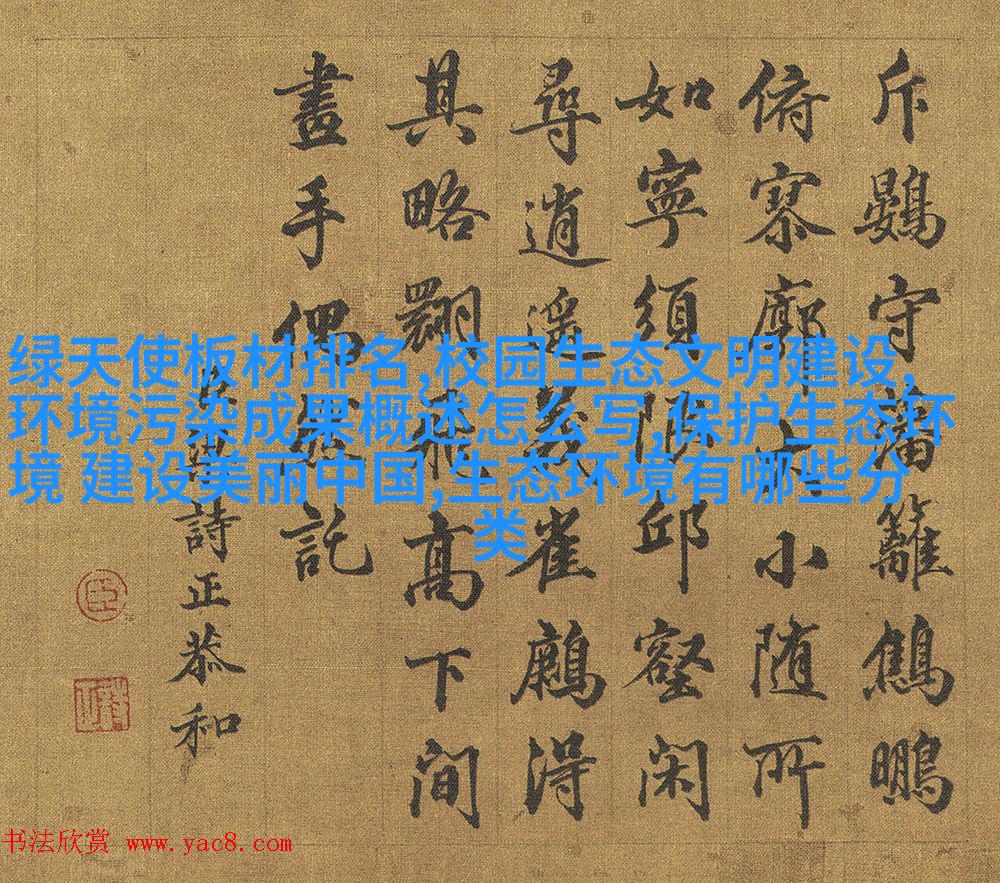 斥鷃守藩籬鷦鵬
俯寥廓大小随所
如寧須限邱壑閑
尋逍遥義雀得
其略翾飛高下間
畫手偶然託
臣梁詩正恭和
臣
绿天使板材排名,校园生态文明建设,
环境污染成果概述怎么写,保护生态环
境 建设美丽中国,生态环境有哪些分
类
书法欣赏 www.yac8.com